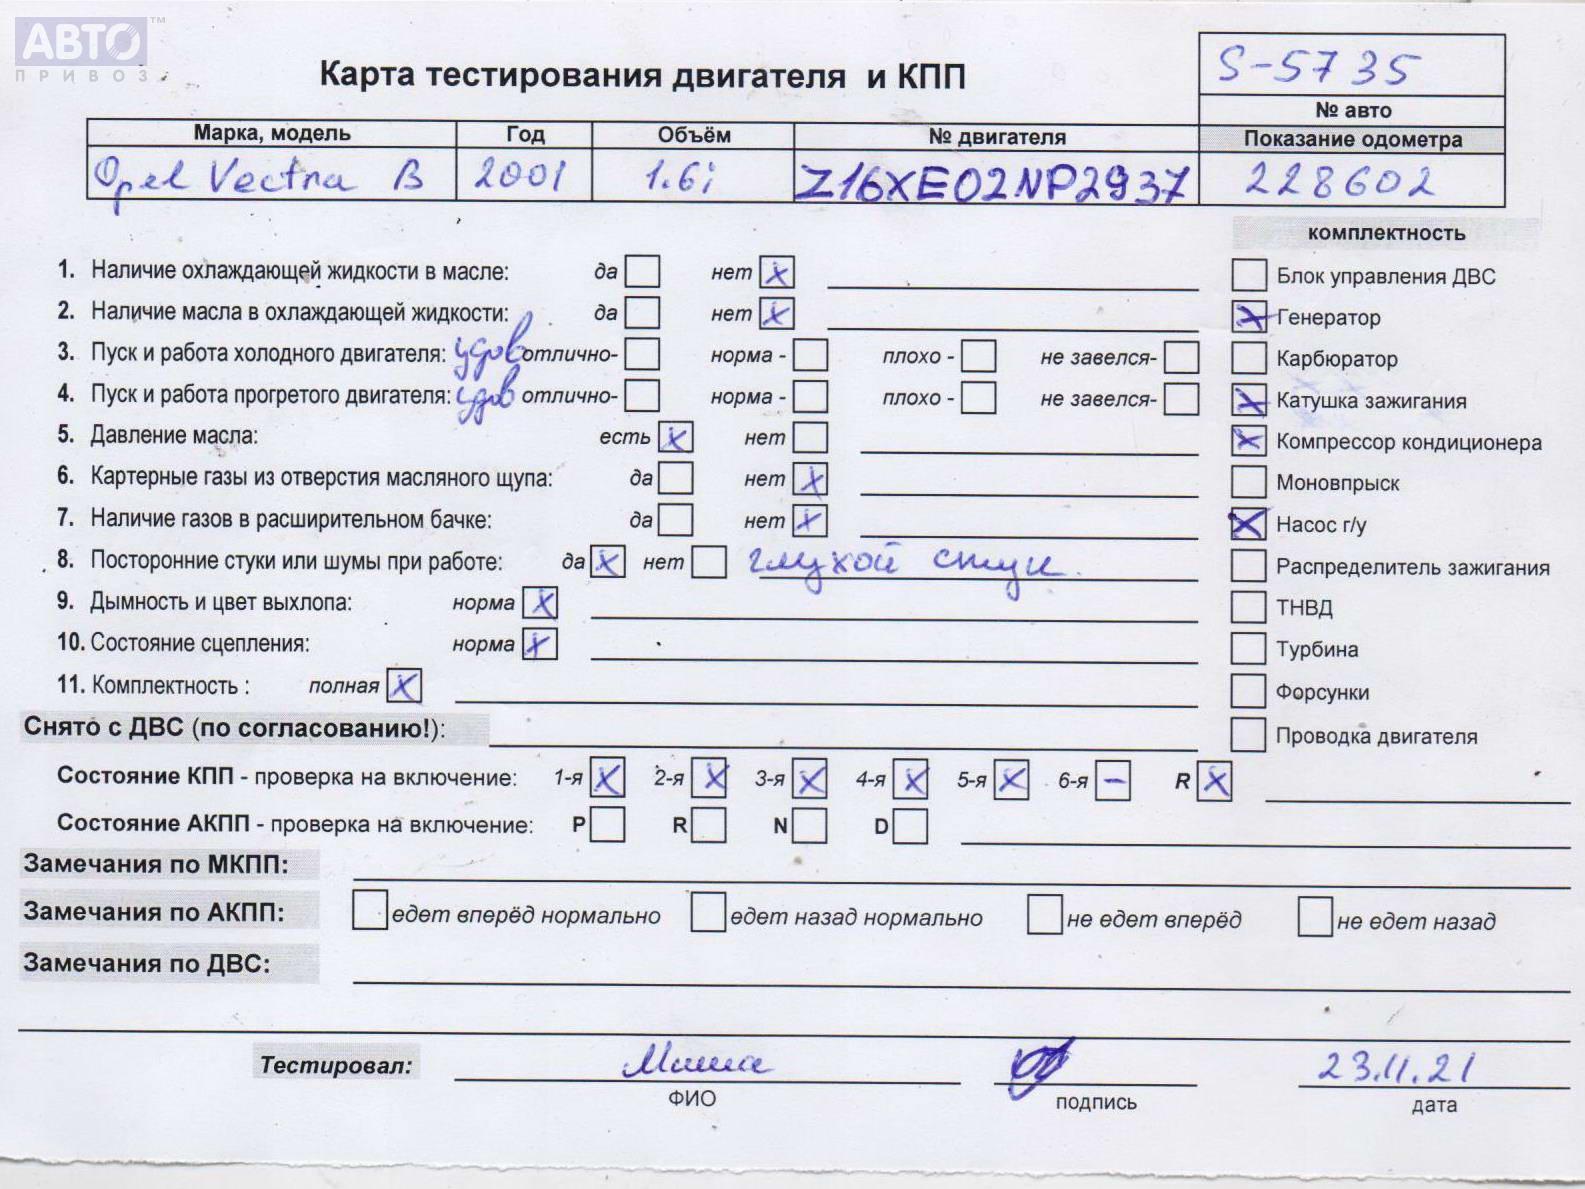 АВТО™
ПРИВОЗ
Карта тестирования двигателя и КПП
S-5735
№ авто
Марка, модель Год Объём № двигателя Показание одометра
Opel Vectra B 2001 1.6i Z16XE02NP2937 228602
комплектность
1. Наличие охлаждающей жидкости в масле: да нет x
Блок управления ДВС
2. Наличие масла в охлаждающей жидкости: да нет x
x Генератор
3. Пуск и работа холодного двигателя: удов отлично- норма - плохо - не завелся-
Карбюратор
4. Пуск и работа прогретого двигателя: удов отлично- норма - плохо - не завелся-
x Катушка зажигания
5. Давление масла: есть x нет
x Компрессор кондиционера
6. Картерные газы из отверстия масляного щупа: да нет x
Моновпрыск
7. Наличие газов в расширительном бачке: да нет x
x Насос г/у
8. Посторонние стуки или шумы при работе: да x нет глухой стук.
Распределитель зажигания
9. Дымность и цвет выхлопа: норма x
ТНВД
10. Состояние сцепления: норма x
Турбина
11. Комплектность : полная x
Форсунки
Снято с ДВС (по согласованию!):
Проводка двигателя
Состояние КПП - проверка на включение: 1-я x 2-я x 3-я x 4-я x 5-я x 6-я – R x
Состояние АКПП - проверка на включение: P R N D
Замечания по МКПП:
Замечания по АКПП: едет вперёд нормально едет назад нормально не едет вперёд не едет назад
Замечания по ДВС:
Тестировал: Миша 23.11.21
ФИО подпись дата